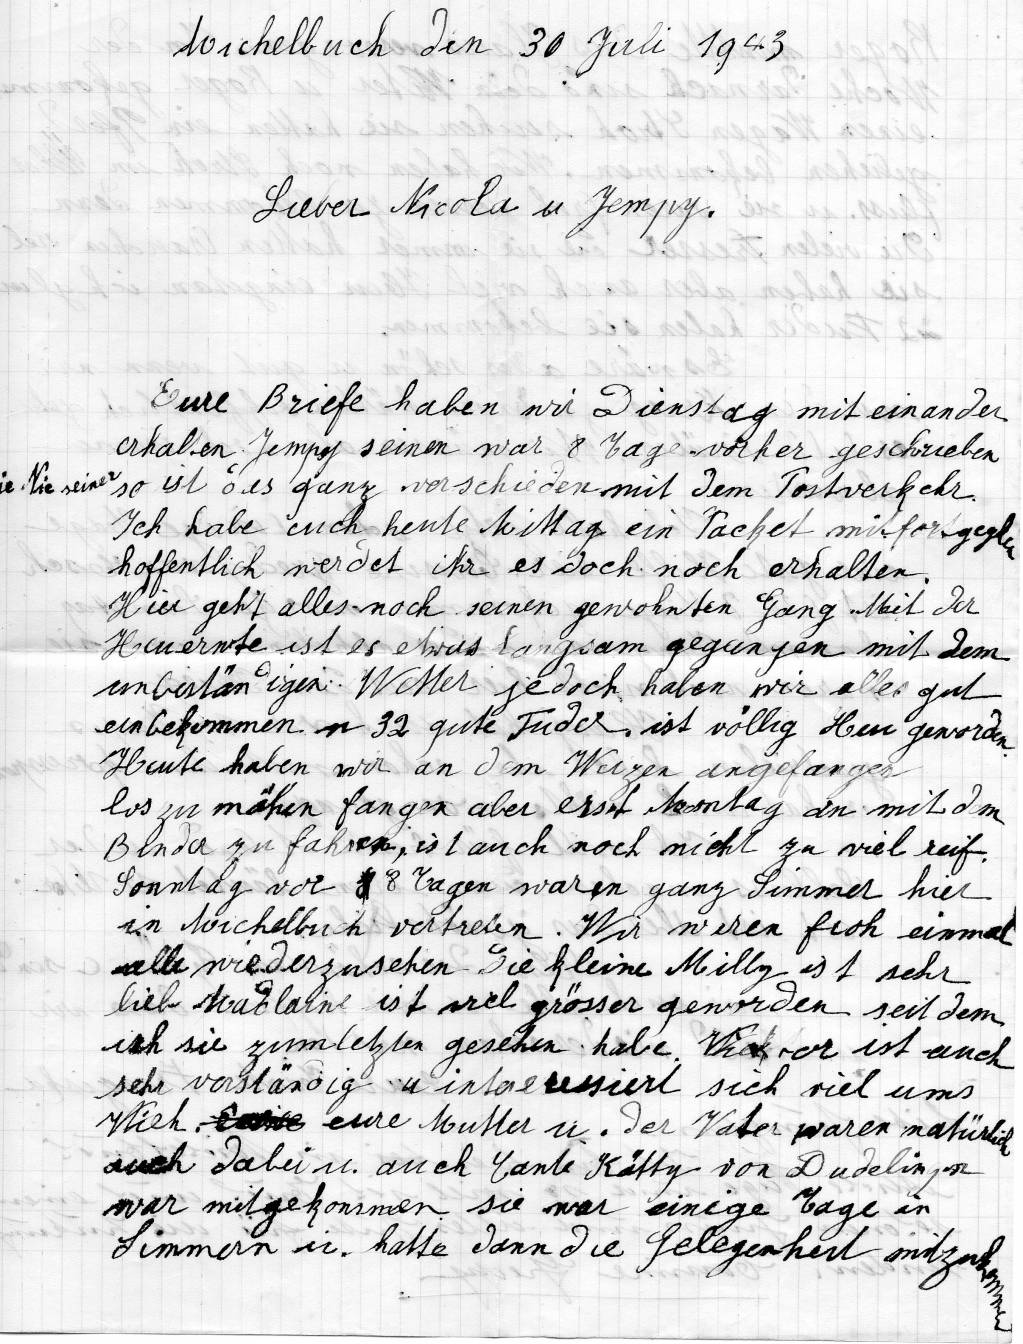 Michelbuch den 30 Juli 1943
Lieber Nicola u Jempy.
Eure Briefe haben wir Dienstag miteinander
erhalten Jempy seinen war 8 Tage vorher geschrieben
wie Nic seiner so ist das ganz verschieden mit dem Postverkehr.
Ich habe euch heute Mittag ein Packet mitfort
hoffentlich werdet ihr es doch noch erhalten.
Hier geht alles noch seinen gewohnten Gang. Mit der
Heuernte ist es etwas langsam gegangen mit dem
unbeständigen Wetter jedoch haben wir alles gut
einbekommen 32 gute Fuder. ist völlig Heu geworden.
Heute haben wir an dem Weizen angefangen
los zu mähen fangen aber erst Montag an mit dem
Binder zu fahren, ist auch noch nicht zu viel reif.
Sonntag vor 8 Tagen waren ganz Simmer hier
in Michelbuch vertreten. Wir waren froh einmal
alle wiederzusehen Die kleine Milly ist sehr
lieb Madlaine ist viel grösser geworden seit dem
ich sie zumletzten gesehen habe. Victor ist auch
sehr verständig u interessiert sich viel ums
Vieh. eure Mutter u. der Vater waren natürlich
auch dabei u. auch Tante Kätty von Dudelingen
war mitgekommen sie war einige Tage in
Simmern u. hatte dann die Gelegenheit mitzukommen